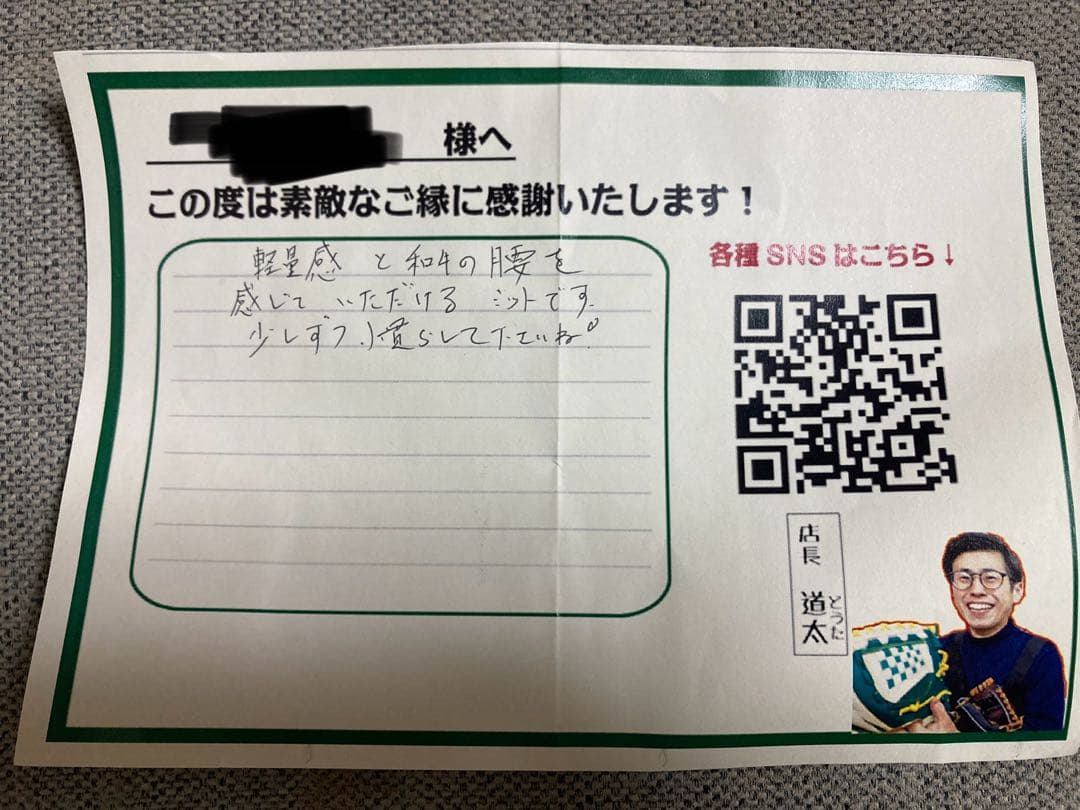 様へ
この度は素敵なご縁に感謝いたします！
軽量感と和牛の腰を
感じていただけるミットです.
少しずつ、慣らして下さいね!
各種SNSはこちら↓
店長
道太
とうた